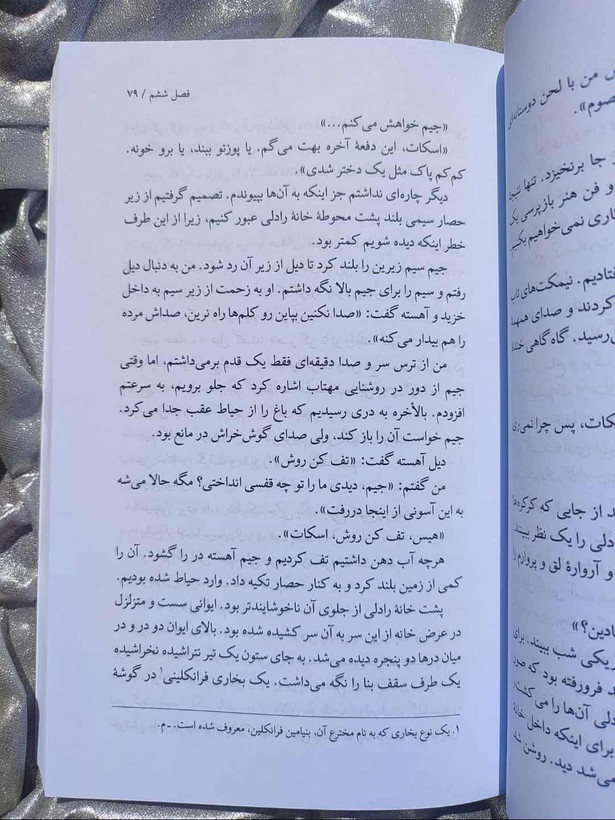 فصل ششم / ۷۹
«جیم خواهش می‌کنم...»
«اسکات، این دفعهٔ آخره بهت می‌گم، یا پوزتو ببند، یا برو خونه.
کم‌کم پاک مثل یک دختر شدی».
دیگر چاره‌ای نداشتم جز اینکه به آن‌ها بپیوندم. تصمیم گرفتیم از زیر
حصار سیمی بلند پشت محوطهٔ خانهٔ رادلی عبور کنیم، زیرا از این طرف
خطر اینکه دیده شویم کمتر بود.
جیم سیم زیرین را بلند کرد تا دیل از زیر آن رد شود. من به دنبال دیل
رفتم و سیم را برای جیم بالا نگه داشتم. او به زحمت از زیر سیم به داخل
خزید و آهسته گفت: «صدا نکنین بپاین رو کلم‌ها راه نرین، صداش مرده
را هم بیدار می‌کنه».
من از ترس سر و صدا دقیقه‌ای فقط یک قدم برمی‌داشتم، اما وقتی
جیم از دور در روشنایی مهتاب اشاره کرد که جلو برویم، به سرعتم
افزودم. بالأخره به دری رسیدیم که باغ را از حیاط عقب جدا می‌کرد.
جیم خواست آن را باز کند، ولی صدای گوش‌خراش در مانع بود.
دیل آهسته گفت: «تف کن روش».
من گفتم: «جیم، دیدی ما را تو چه قفسی انداختی؟ مگه حالا می‌شه
به این آسونی از اینجا دررفت».
«هیس، تف کن روش، اسکات».
هرچه آب دهن داشتیم تف کردیم و جیم آهسته در را گشود. آن را
کمی از زمین بلند کرد و به کنار حصار تکیه داد. وارد حیاط شده بودیم.
پشت خانهٔ رادلی از جلوی آن ناخوشایندتر بود. ایوانی سست و متزلزل
در عرض خانه از این سر به آن سر کشیده شده بود. بالای ایوان دو در و در
میان درها دو پنجره دیده می‌شد. به جای ستون یک تیر نتراشیده نخراشیده
یک طرف سقف بنا را نگه می‌داشت. یک بخاری فرانکلینی۱ در گوشهٔ
۱. یک نوع بخاری که به نام مخترع آن، بنیامین فرانکلین، معروف شده است. ـ م.
من با لحن دوستانه‌ای
جا برنخیزد. تنها
و فن هنر بازپرسی یک
کاری نمی‌خواهیم بکنیم
نیمکت‌های تاب
کردند و صدای
گاه‌گاهی خنده
پس چرا نمی‌ری
از جایی که کرکره‌ها
را یک نظر ببیند
و آروارهٔ لق و پروارم را
شب ببیند. برای
فرورفته بود که
آن‌ها را می‌کشت.
برای اینکه داخل خانهٔ
دید. روشن شد